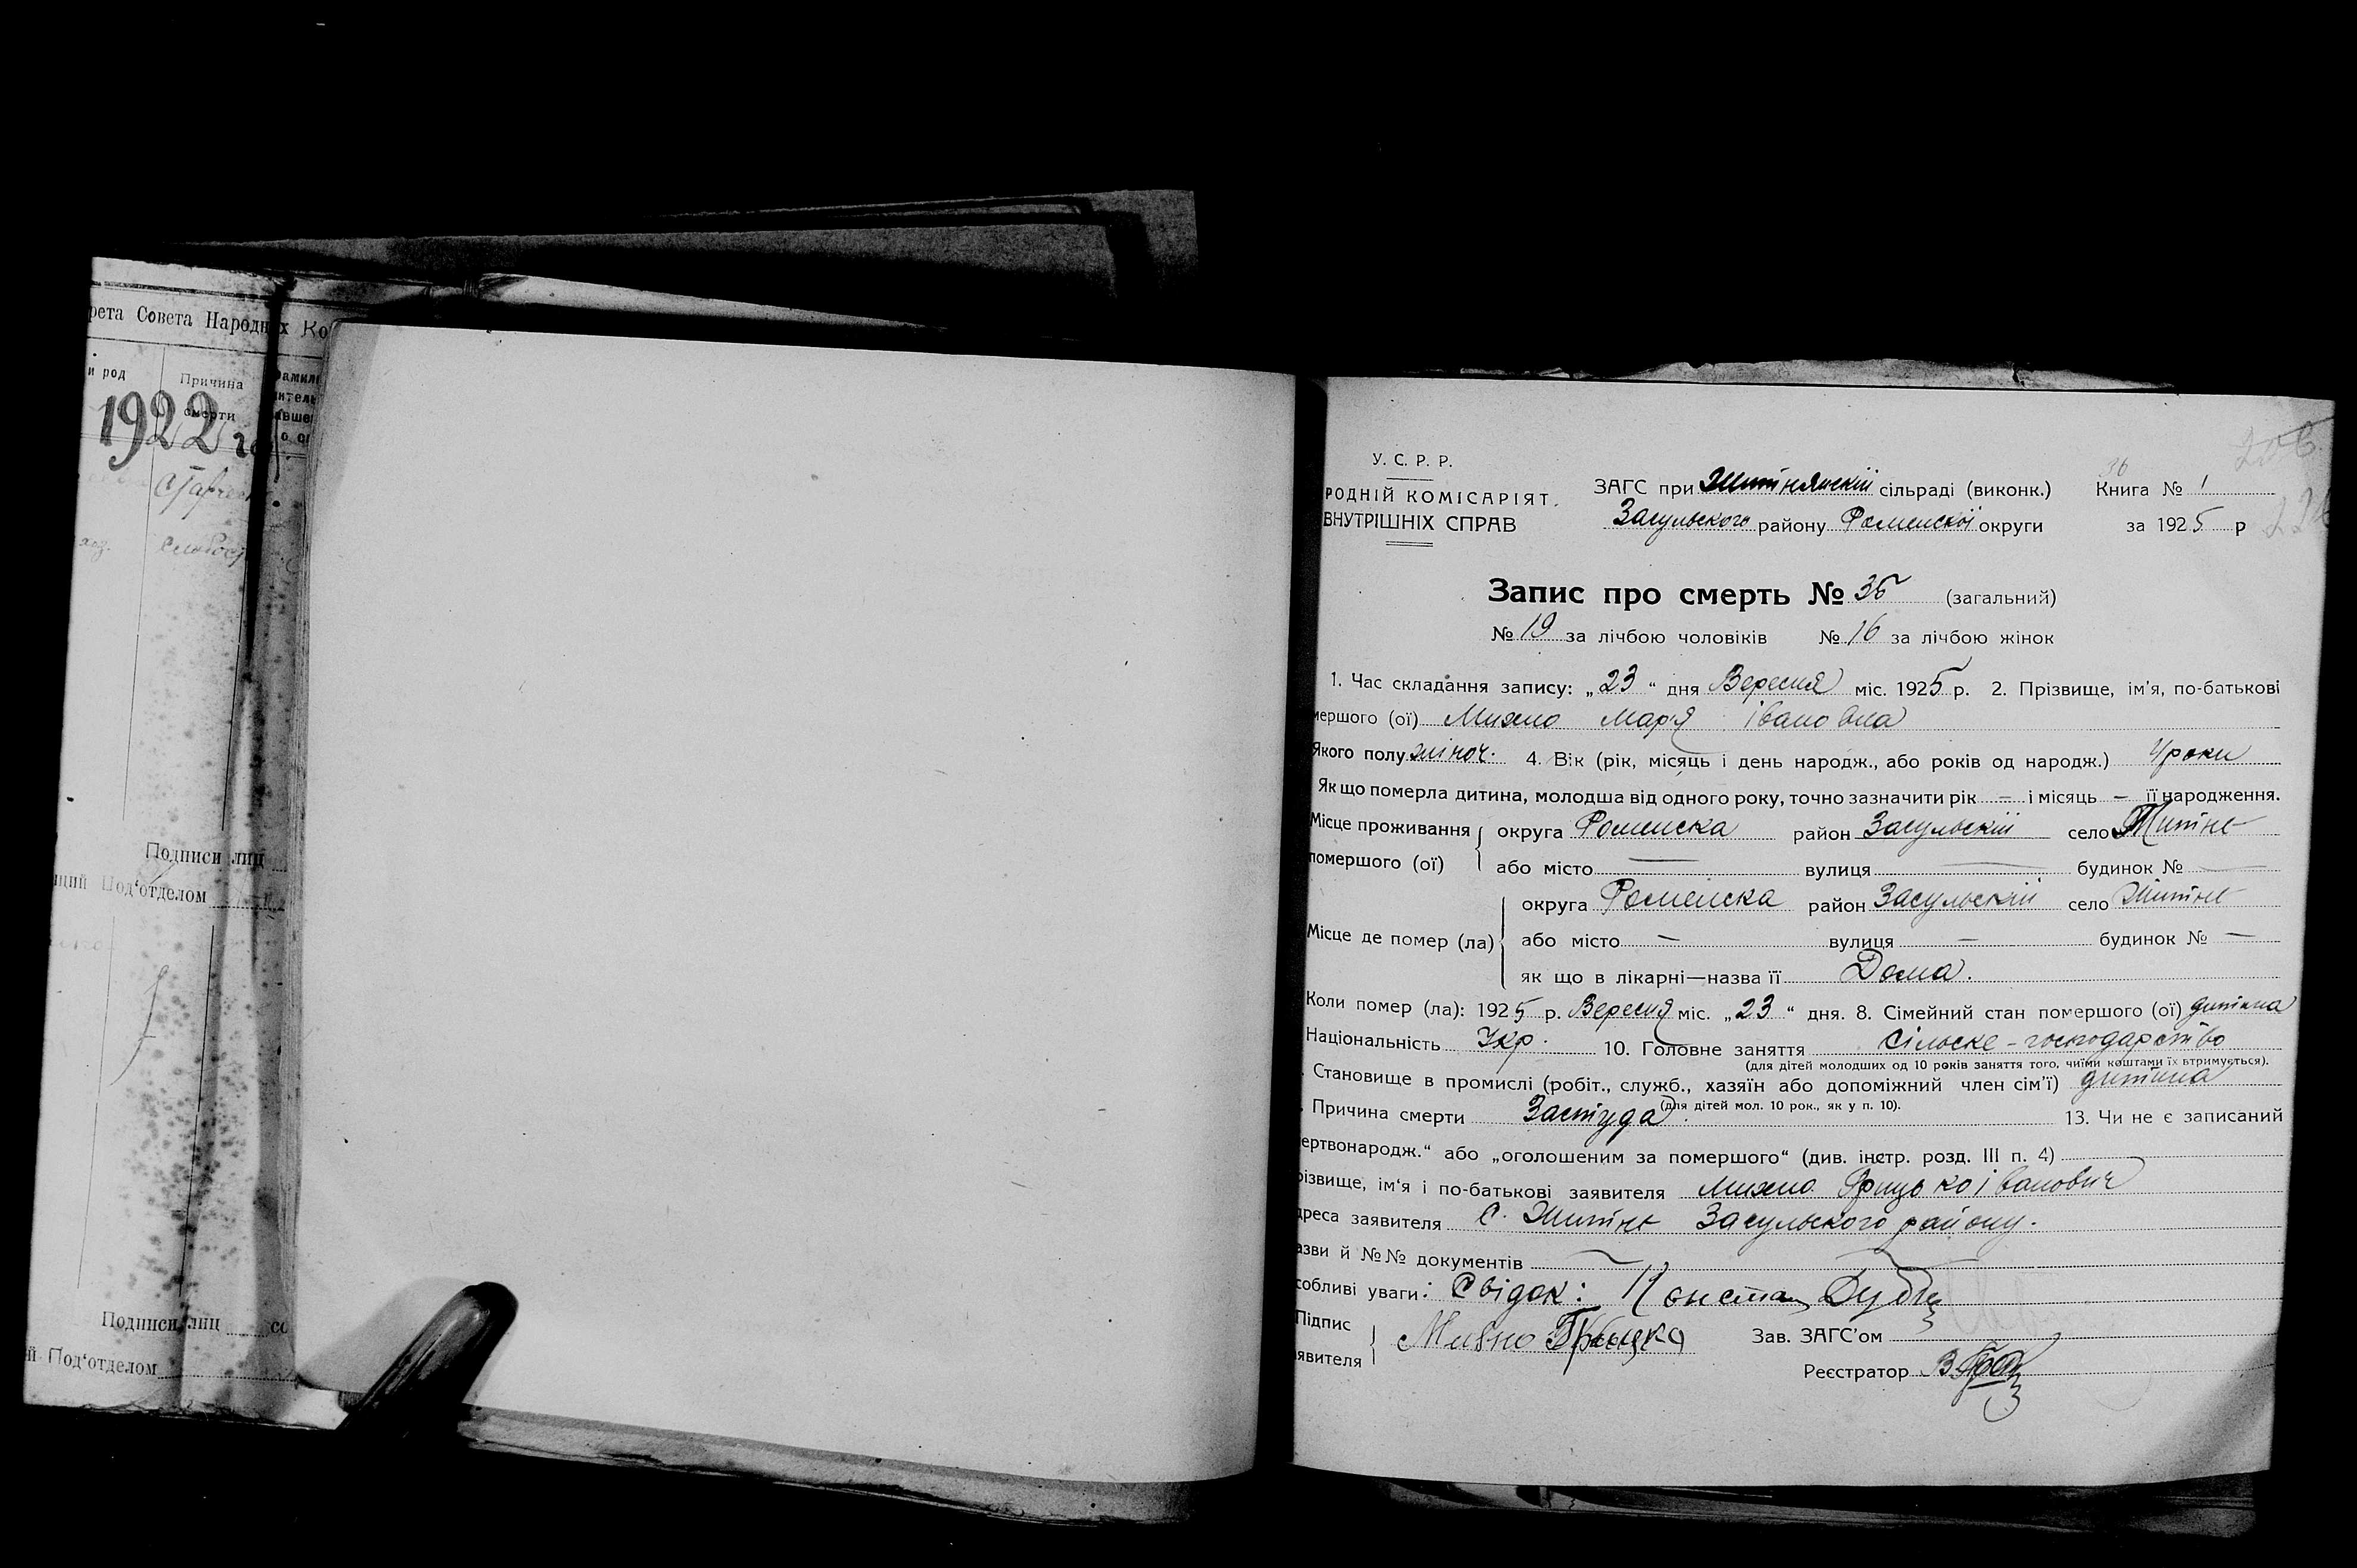 рета Совета Народных Ко
и род
Причина
смерти
1922 го
Подписи лиц
Под‘отделом
Подписи лиц со
й Под‘отделом
У. С. Р. Р.
РОДНІЙ КОМІСАРІЯТ
ВНУТРІШНІХ СПРАВ
ЗАГС при Житнянскій сільраді (виконк.)
Засульского району Роменскої округи
Книга № 1
за 1925 р
Запис про смерть № 35 (загальний)
№ 19 за лічбою чоловіків № 16 за лічбою жінок
1. Час складання запису: „23“ дня Вересня міс. 1925 р. 2. Прізвище, ім’я, по-батькові
мершого (ої) Михно Мар'я івановна
Якого полу жіноч. 4. Вік (рік, місяць і день народж., або років од народж.) 4 роки
Як що померла дитина, молодша від одного року, точно зазначити рік — і місяць — її народження.
Місце проживання помершого (ої) округа Роменска район Засульскій село Житне
або місто — вулиця — будинок № —
Місце де помер (ла) округа Роменска район Засульскій село Житне
або місто — вулиця — будинок № —
як що в лікарні—назва її Дома.
Коли помер (ла): 1925 р. Вересня міс. „23“ дня. 8. Сімейний стан помершого (ої) дитина
Національність Укр. 10. Головне заняття сільске-господарство
(для дітей молодших од 10 років заняття того, чиїми коштами їх втримується).
Становище в промислі (робіт., служб., хазяїн або допоміжний член сім’ї) дитина
(для дітей мол. 10 рок., як у п. 10).
Причина смерти Застуда. 13. Чи не є записаний
ертвонародж.“ або „оголошеним за помершого“ (див. інстр. розд. III п. 4)
різвище, ім‘я і по-батькові заявителя Михно Грицько іванович
дреса заявителя С. Житне Засульского району.
азви й №№ документів —
собливі уваги: Свідок:
Підпис
явителя Михно Грицко
Зав. ЗАГС’ом
Реєстратор